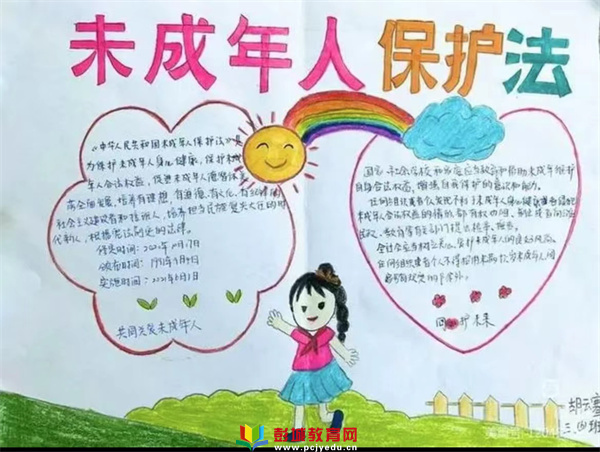 未成年人保护法
《中华人民共和国未成年人保护法》是
为保护未成年人身心健康，保护未成
年人合法权益，促进未成年人德智体美
劳全面发展，培养有理想、有道德、有文化、有纪律的
社会主义建设者和接班人，培养担当民族复兴大任的时
代新人，根据宪法制定的法律。
修订时间：2020年10月17日
颁布时间：1991年9月4日
实施时间：2021年6月1日
共同关爱未成年人
国家、社会、学校和家庭应当教育和帮助未成年人维护
自身合法权益，增强自我保护的意识和能力。
任何组织或者个人发现不利于未成年人身心健康或者侵犯
未成年人合法权益的情形，都有权劝阻、制止或者向公安
民政、教育等有关部门提出检举、控告。
全社会应当树立关心、保护未成年人的良好风尚。
未来
胡云
三、四班
彭城教育网
www.pcjyedu.cn